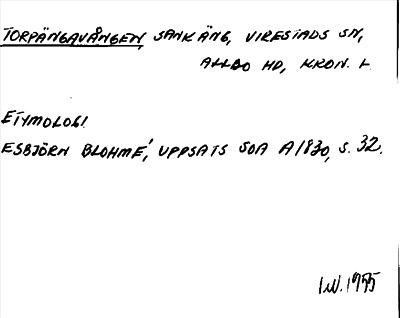 TORPÄNGAVÅNGEN, SANKÄNG, VIRESTADS SN,
ALLBO HD, KRON. L.
ETYMOLOGI.
ESBJÖRN BLOHMÉ, UPPSATS SOA A1830, S. 32.
I.W. 1955